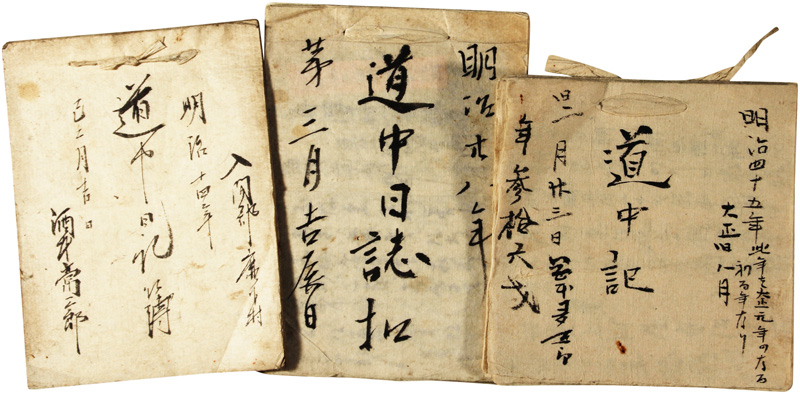 明治四十五年此年を大正元年
初年なり
大正旧八月
道中記
一月廿三日
年参拾六才
明治廿八年
道中日誌扣
第三月吉辰日
入間郡
明治十四年
道中日記簿
巳二月吉日